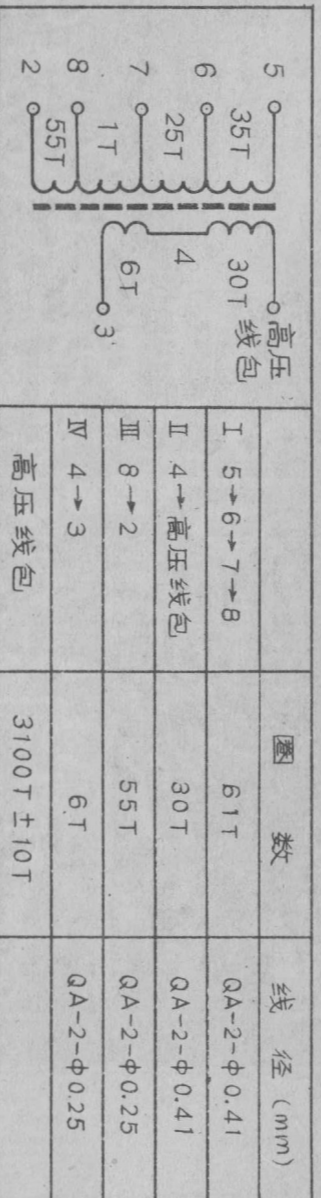 5 6 7 8 2
35T 25T 1T 55T
30T 4 6T
高压
线包
3
圈 数 线 径 (mm)
I 5→6→7→8 61T QA-2-φ0.41
II 4→高压线包 30T QA-2-φ0.41
III 8→2 55T QA-2-φ0.25
IV 4→3 6T QA-2-φ0.25
高压线包 3100T±10T